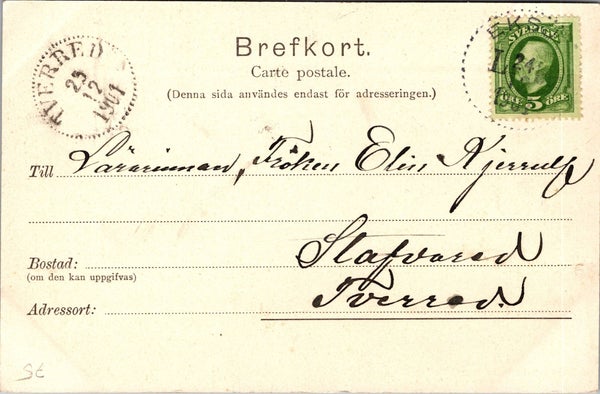 Brefkort.
Carte postale.
(Denna sida användes endast för adresseringen.)
TVERRED
25
12
1901
SVERIGE
ÖRE 5 ÖRE
Till Lärarinnan, Fröken Elin Kjerrulf
Bostad: Stafvared
(om den kan uppgifvas)
Adressort: Tverred.